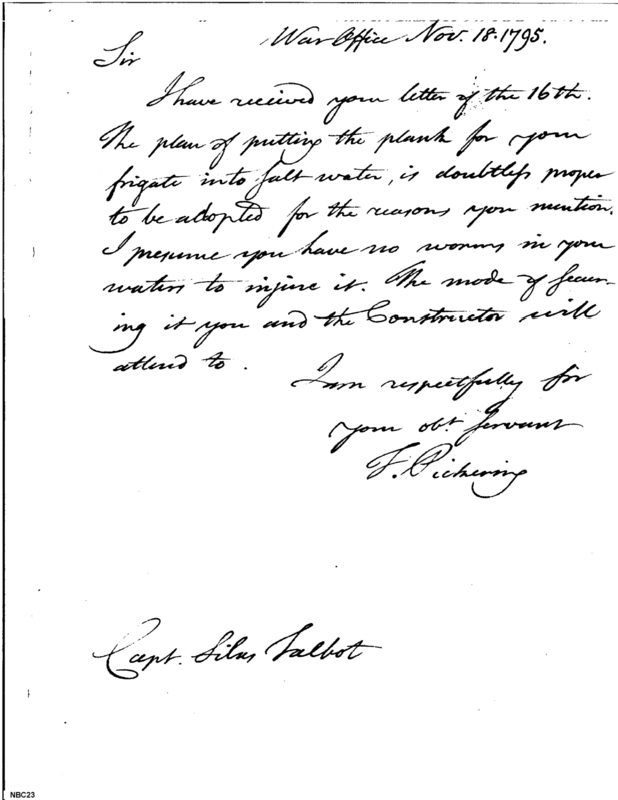 War Office Nov. 18. 1795.
Sir
I have received your letter of the 16th.
The plan of putting the plank for your
frigate into salt water, is doubtless proper
to be adopted for the reasons you mention.
I presume you have no worms in your
waters to injure it. The mode of secur-
ing it you and the Constructor will
attend to.
I am respectfully Sir
your obt. servant
T. Pickering
Capt. Silas Talbot
NBC23